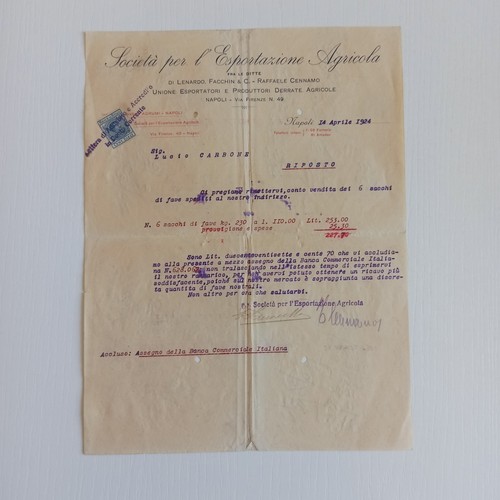 Società per l'Esportazione Agricola
FRA LE DITTE
DI LENARDO, FACCHIN E C. - RAFFAELE CENNAMO
UNIONE ESPORTATORI E PRODUTTORI DERRATE AGRICOLE
NAPOLI - VIA FIRENZE N. 49
Napoli 14 Aprile 1924
Sig.
Lucio CARBONE
RIPOSTO
Ci pregiamo rimettervi, conto vendita dei 6 sacchi
di fave spediti al nostro indirizzo.
N. 6 sacchi di fave kg. 230 a l. 110.00 Lit. 253.00
provvigione e spese 25.30
227.70
Sono Lit. duecentoventisette e cente 70 che vi accludia-
mo alla presente a mezzo assegno della Banca Commerciale Italia-
na N. non tralasciando nell'istesso tempo di esprimervi
il nostro rammarico, per non avervi potuto ottenere un ricavo più
soddisfacente, poichè sul nostro mercato è sopraggiunta una discre-
ta quantità di fave nostrali.
Non altro per ora che salutarvi.
Società per l'Esportazione Agricola
Cennamo
Accluso: Assegno della Banca Commerciale Italiana